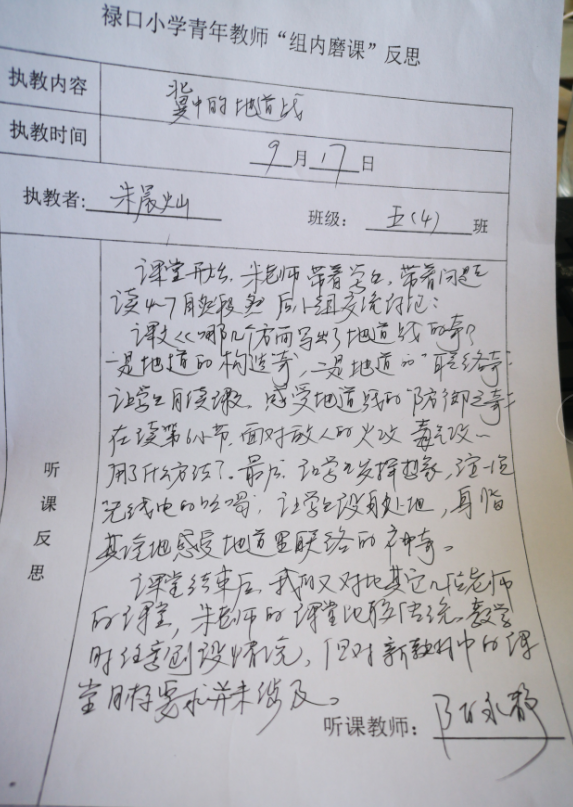 禄口小学青年教师“组内磨课”反思
执教内容
冀中的地道战
执教时间
9月17日
执教者:朱晨灿
班级: 五(4)班
听课反思
课堂开始,朱老师带着学生,带着问题
读4-7自然段,然后小组交流讨论:
课文从哪几个方面写出了地道战的奇?
一是地道的“构造奇”,二是地道的“联络奇”
让学生自读课文,感受地道战的“防御之奇”
在读第6小节,面对敌人的火攻 毒气攻…
用了什么方法?最后,让学生发挥想象,演一演
无线电的吆喝,让学生设身处地,身临
其境地感受地道里联络的神奇。
课堂结束后,我们又对比其它几位老师
的课堂,朱老师的课堂比较传统,教学
时注意创设情境,但对新教材中的课
堂目标要求并未涉及。
听课教师: